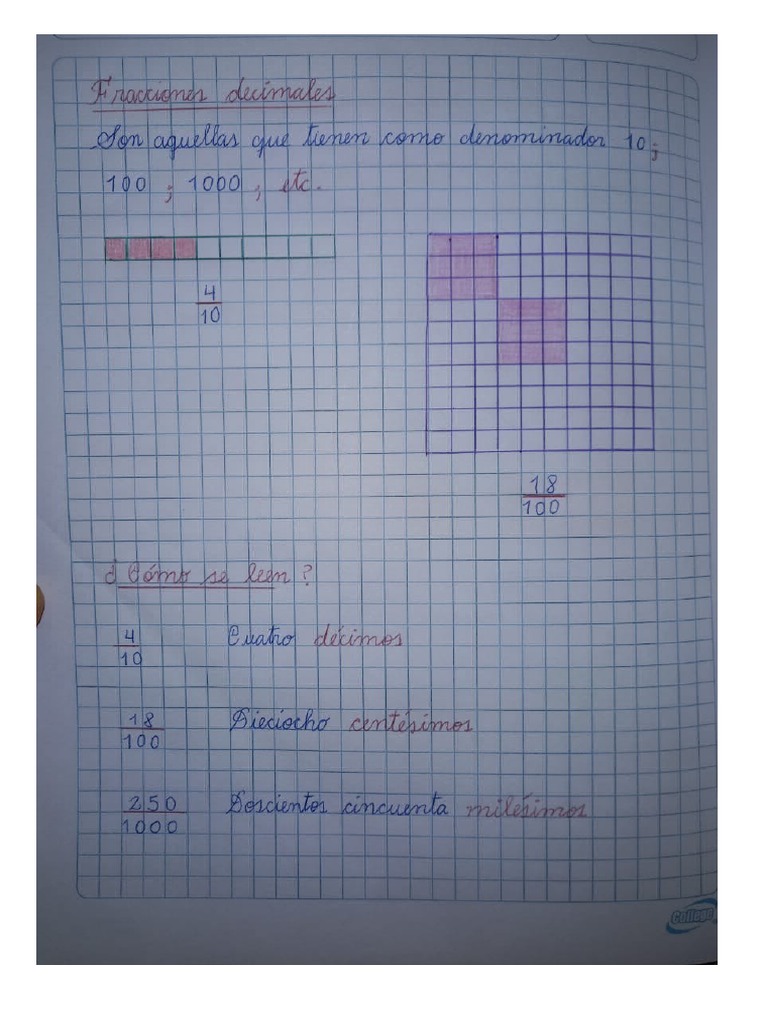 Fracciones decimales
Son aquellas que tienen como denominador 10;
100 ; 1000 ; etc.
4
10
18
100
¿Cómo se leen?
4
10
Cuatro décimos
18
100
Dieciocho centésimos
250
1000
Doscientos cincuenta milésimos
College